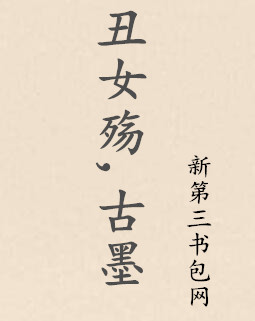 丑女殇，古墨
新第三书包网